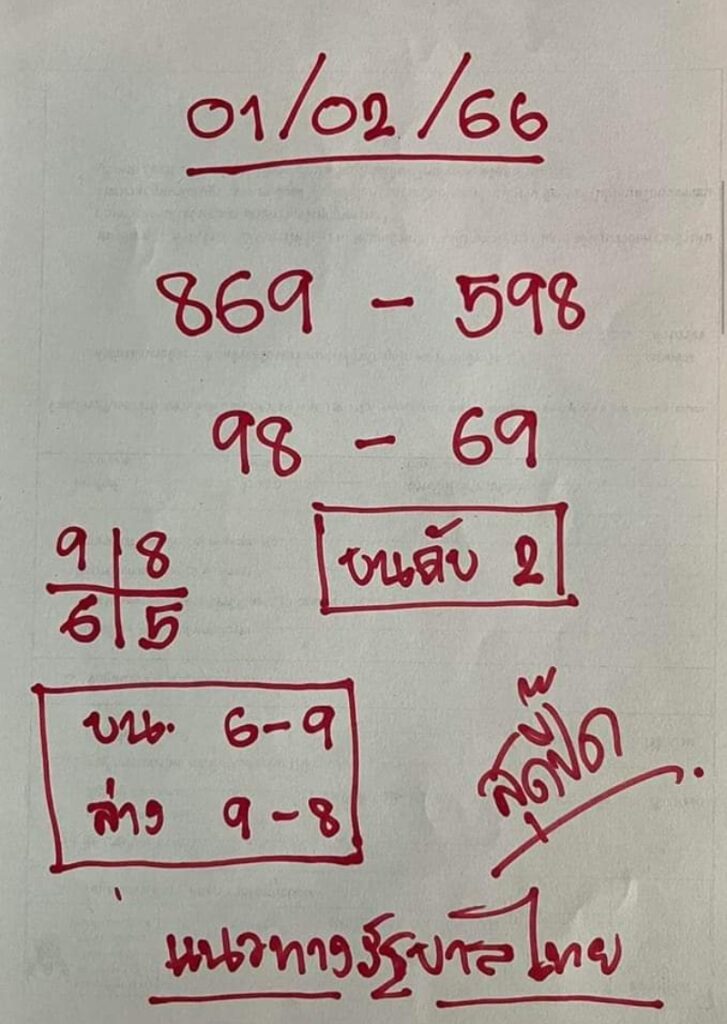 01/02/66
869 - 598
98 - 69
9 8
6 5
บนดับ 2
บน. 6-9
ล่าง 9-8
สุดปี๊ด
แนวทางรัฐบาลไทย